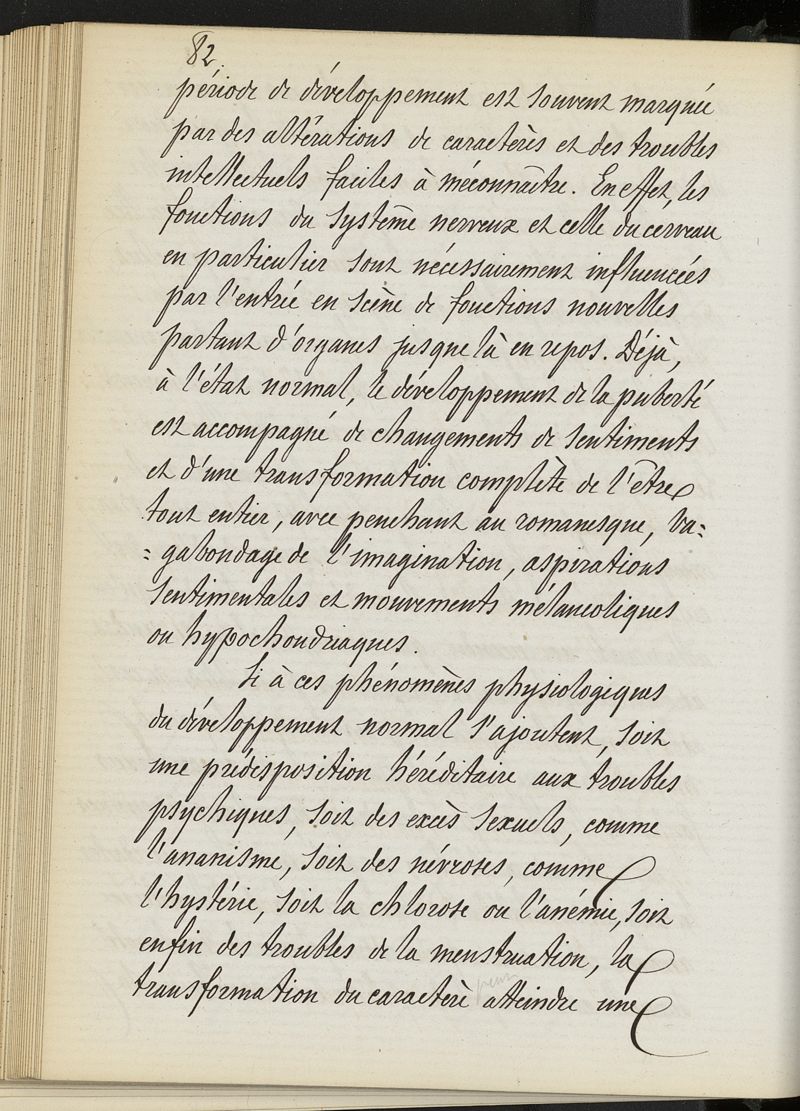 82
période de développement est souvent marquée
par des altérations de caractères et des troubles
intellectuels faciles à méconnaître. En effet, les
fonctions du système nerveux et celle du cerveau
en particulier sont nécessairement influencées
par l'entrée en scène de fonctions nouvelles
partant d'organes jusque là en repos. Déjà,
à l'état normal, le développement de la puberté
est accompagné de changements de sentiments
et d'une transformation complète de l'être
tout entier, avec penchant au romanesque, va=
= gabondage de l'imagination, aspirations
sentimentales et mouvements mélancoliques
ou hypochondriaques.
Si à ces phénomènes physiologiques
du développement normal s'ajoutent, soit
une prédisposition héréditaire aux troubles
psychiques, soit des excès sexuels, comme
l'ananisme, soit des névroses, comme
l'hystérie, soit la chlorose ou l'anémie, soit
enfin des troubles de la menstruation, la
transformation du caractère peut atteindre une